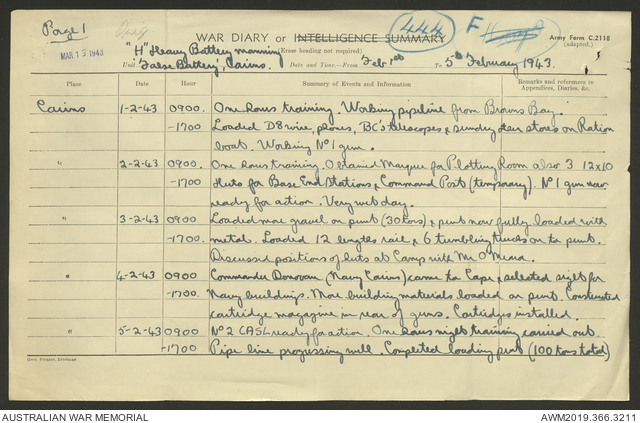 Page 1 Orig 444 F
MAR 13 1943
WAR DIARY or INTELLIGENCE SUMMARY
Army Form C.2118
(adapted.)
"H" Heavy Battery manning (Erase heading not required).
Unit "False Battery", Cairns. Date and Time—From Feb 1st To 5th February 1943.
Place Date Hour Summary of Events and Information Remarks and references to Appendices, Diaries, &c.
Cairns 1-2-43 0900. One hours training. Working pipeline from Browns Bay.
-1700 Loaded D8 wire, phones, BC's telescopes & sundry other stores on Ration
boat. Working No 1 gun.
" 2-2-43 0900. One hours training. Obtained Marquee for Plotting Room also 3 12x10
-1700 Huts for Base End Stations & Command Post (temporary). No 1 gun now
ready for action. Very wet day.
" 3-2-43 0900 Loaded more gravel on punt (30 tons) & punt now fully loaded with
-1700. metal. Loaded 12 lengths rail & 6 tumbling trucks on to punt.
Discussed positions of huts at Camp with Mr O'Meara.
" 4-2-43 0900 Commander Donovan (Navy Cairns) came to Cape & selected sight for
-1700. Navy buildings. More building materials loaded on punt. Constructed
cartridge magazine in rear of guns. Cartridges installed.
" 5-2-43 0900 No 2 CASL ready for action. One hours night training carried out.
-1700 Pipe line progressing well. Completed loading punt (100 tons total)
Govt. Printer, Brisbane
AUSTRALIAN WAR MEMORIAL AWM2019.366.3211